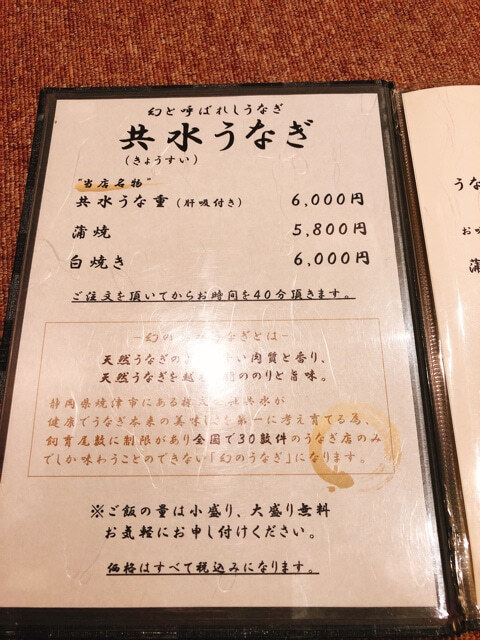 幻と呼ばれしうなぎ
共水うなぎ
(きょうすい)
"当店名物"
共水うな重(肝吸付き) 6,000円
蒲焼 5,800円
白焼き 6,000円
ご注文を頂いてからお時間を40分頂きます。
天然うなぎの い肉質と香り、
天然うなぎを越 ののりと旨味。
静岡県焼津市にある 共水が
健康でうなぎ本来の美味しさを第一に考え育てる為、
飼育尾数に制限があり全国で30数件のうなぎ店のみ
でしか味わうことのできない「幻のうなぎ」になります。
※ご飯の量は小盛り、大盛り無料
お気軽にお申し付けください。
価格はすべて税込みになります。
うな
お
蒲